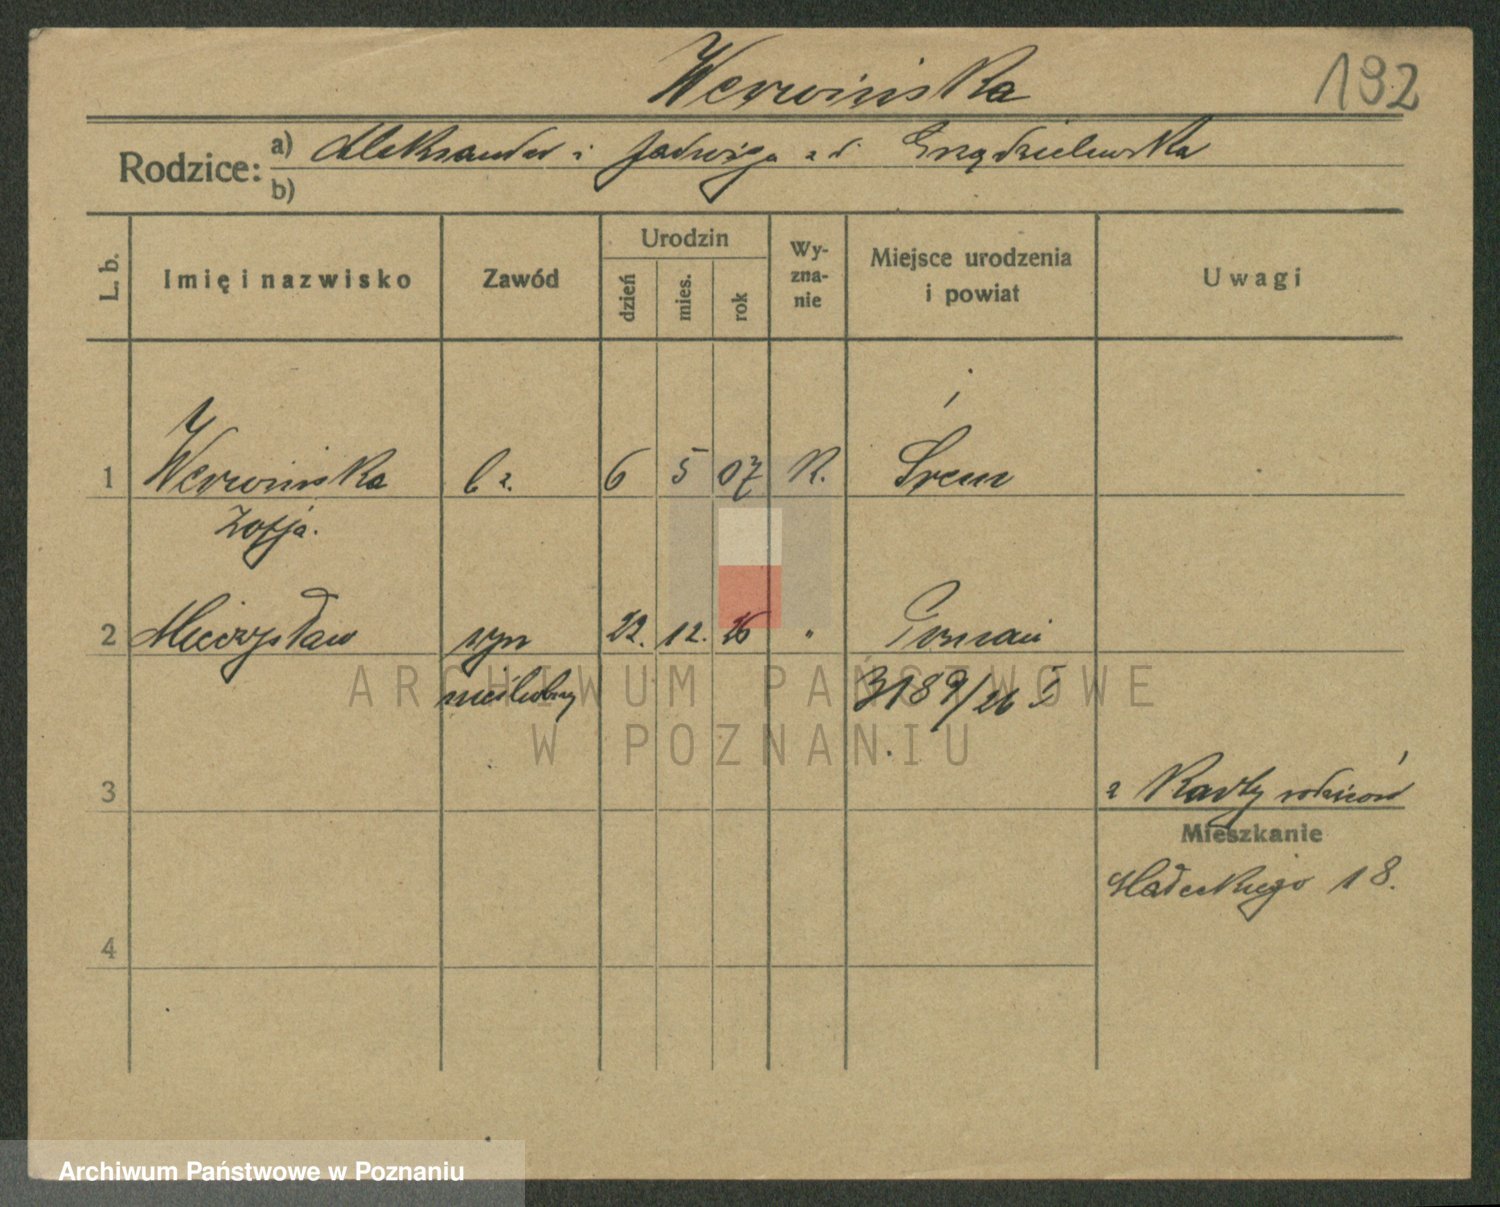 Werwińska
192
Rodzice: a) Aleksander i Jadwiga z d. Grządzielewska
b)
L. b.
Imię i nazwisko
Zawód
Urodzin
dzień
mies.
rok
Wy-
zna-
nie
Miejsce urodzenia
i powiat
Uwagi
1 Werwińska bz. 6 5 07 R. Śrem
Zofja.
2 Mieczysław syn 22. 12. 26 " Poznań
nieślubny 3189/26 I
3 z Karty rodziców
Mieszkanie
Małeckiego 18.
4
ARCHIWUM PAŃSTWOWE
W POZNANIU
Archiwum Państwowe w Poznaniu